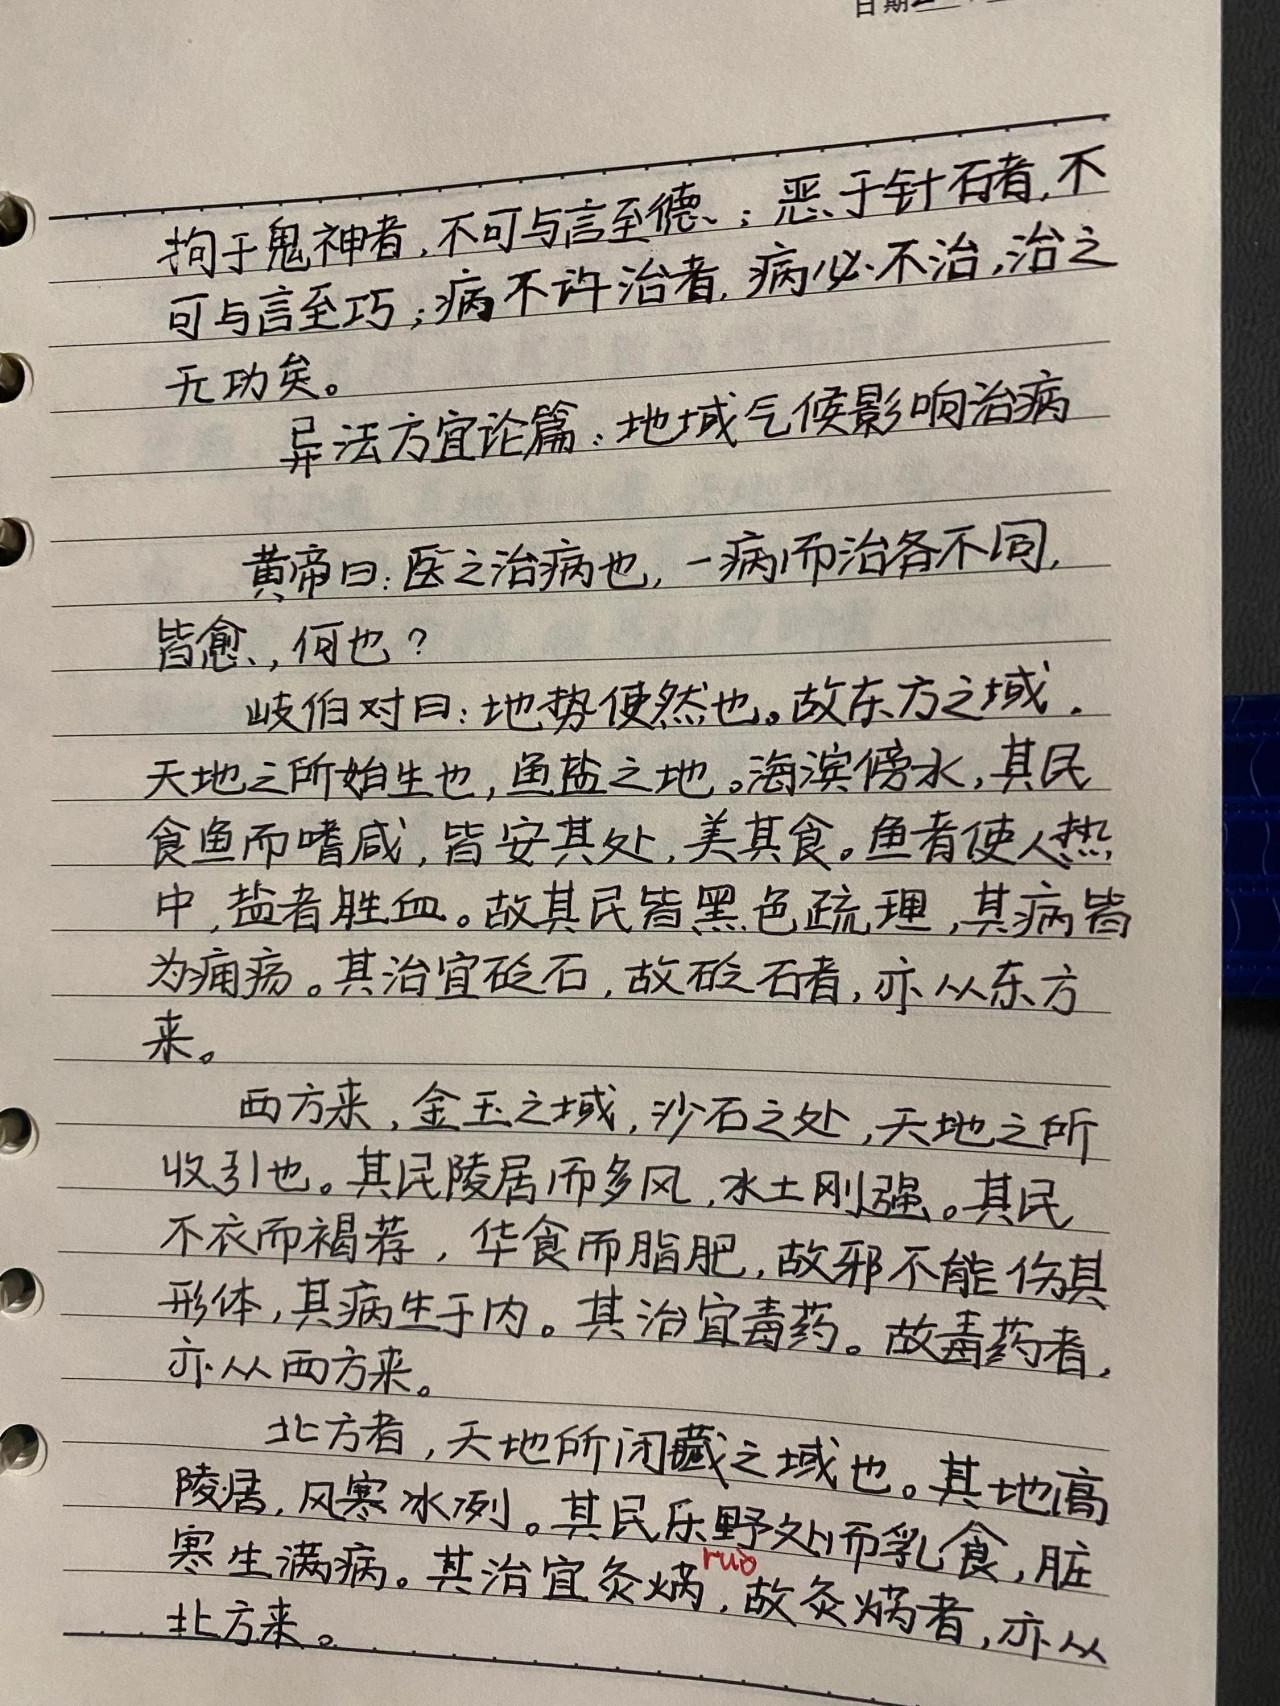 日期
拘于鬼神者，不可与言至德；恶于针石者，不
可与言至巧；病不许治者，病必不治，治之
无功矣。
异法方宜论篇：地域气候影响治病
黄帝曰：医之治病也，一病而治各不同，
皆愈，何也？
岐伯对曰：地势使然也。故东方之域．
天地之所始生也，鱼盐之地。海滨傍水，其民
食鱼而嗜咸，皆安其处，美其食。鱼者使人热
中，盐者胜血。故其民皆黑色疏理，其病皆
为痈疡。其治宜砭石，故砭石者，亦从东方
来。
西方来，金玉之域，沙石之处，天地之所
收引也。其民陵居而多风，水土刚强。其民
不衣而褐荐，华食而脂肥，故邪不能伤其
形体，其病生于内。其治宜毒药。故毒药者，
亦从西方来。
北方者，天地所闭藏之域也。其地高
陵居，风寒冰冽。其民乐野处而乳食，脏
寒生满病。其治宜灸焫，故灸焫者，亦从
ruò
北方来。